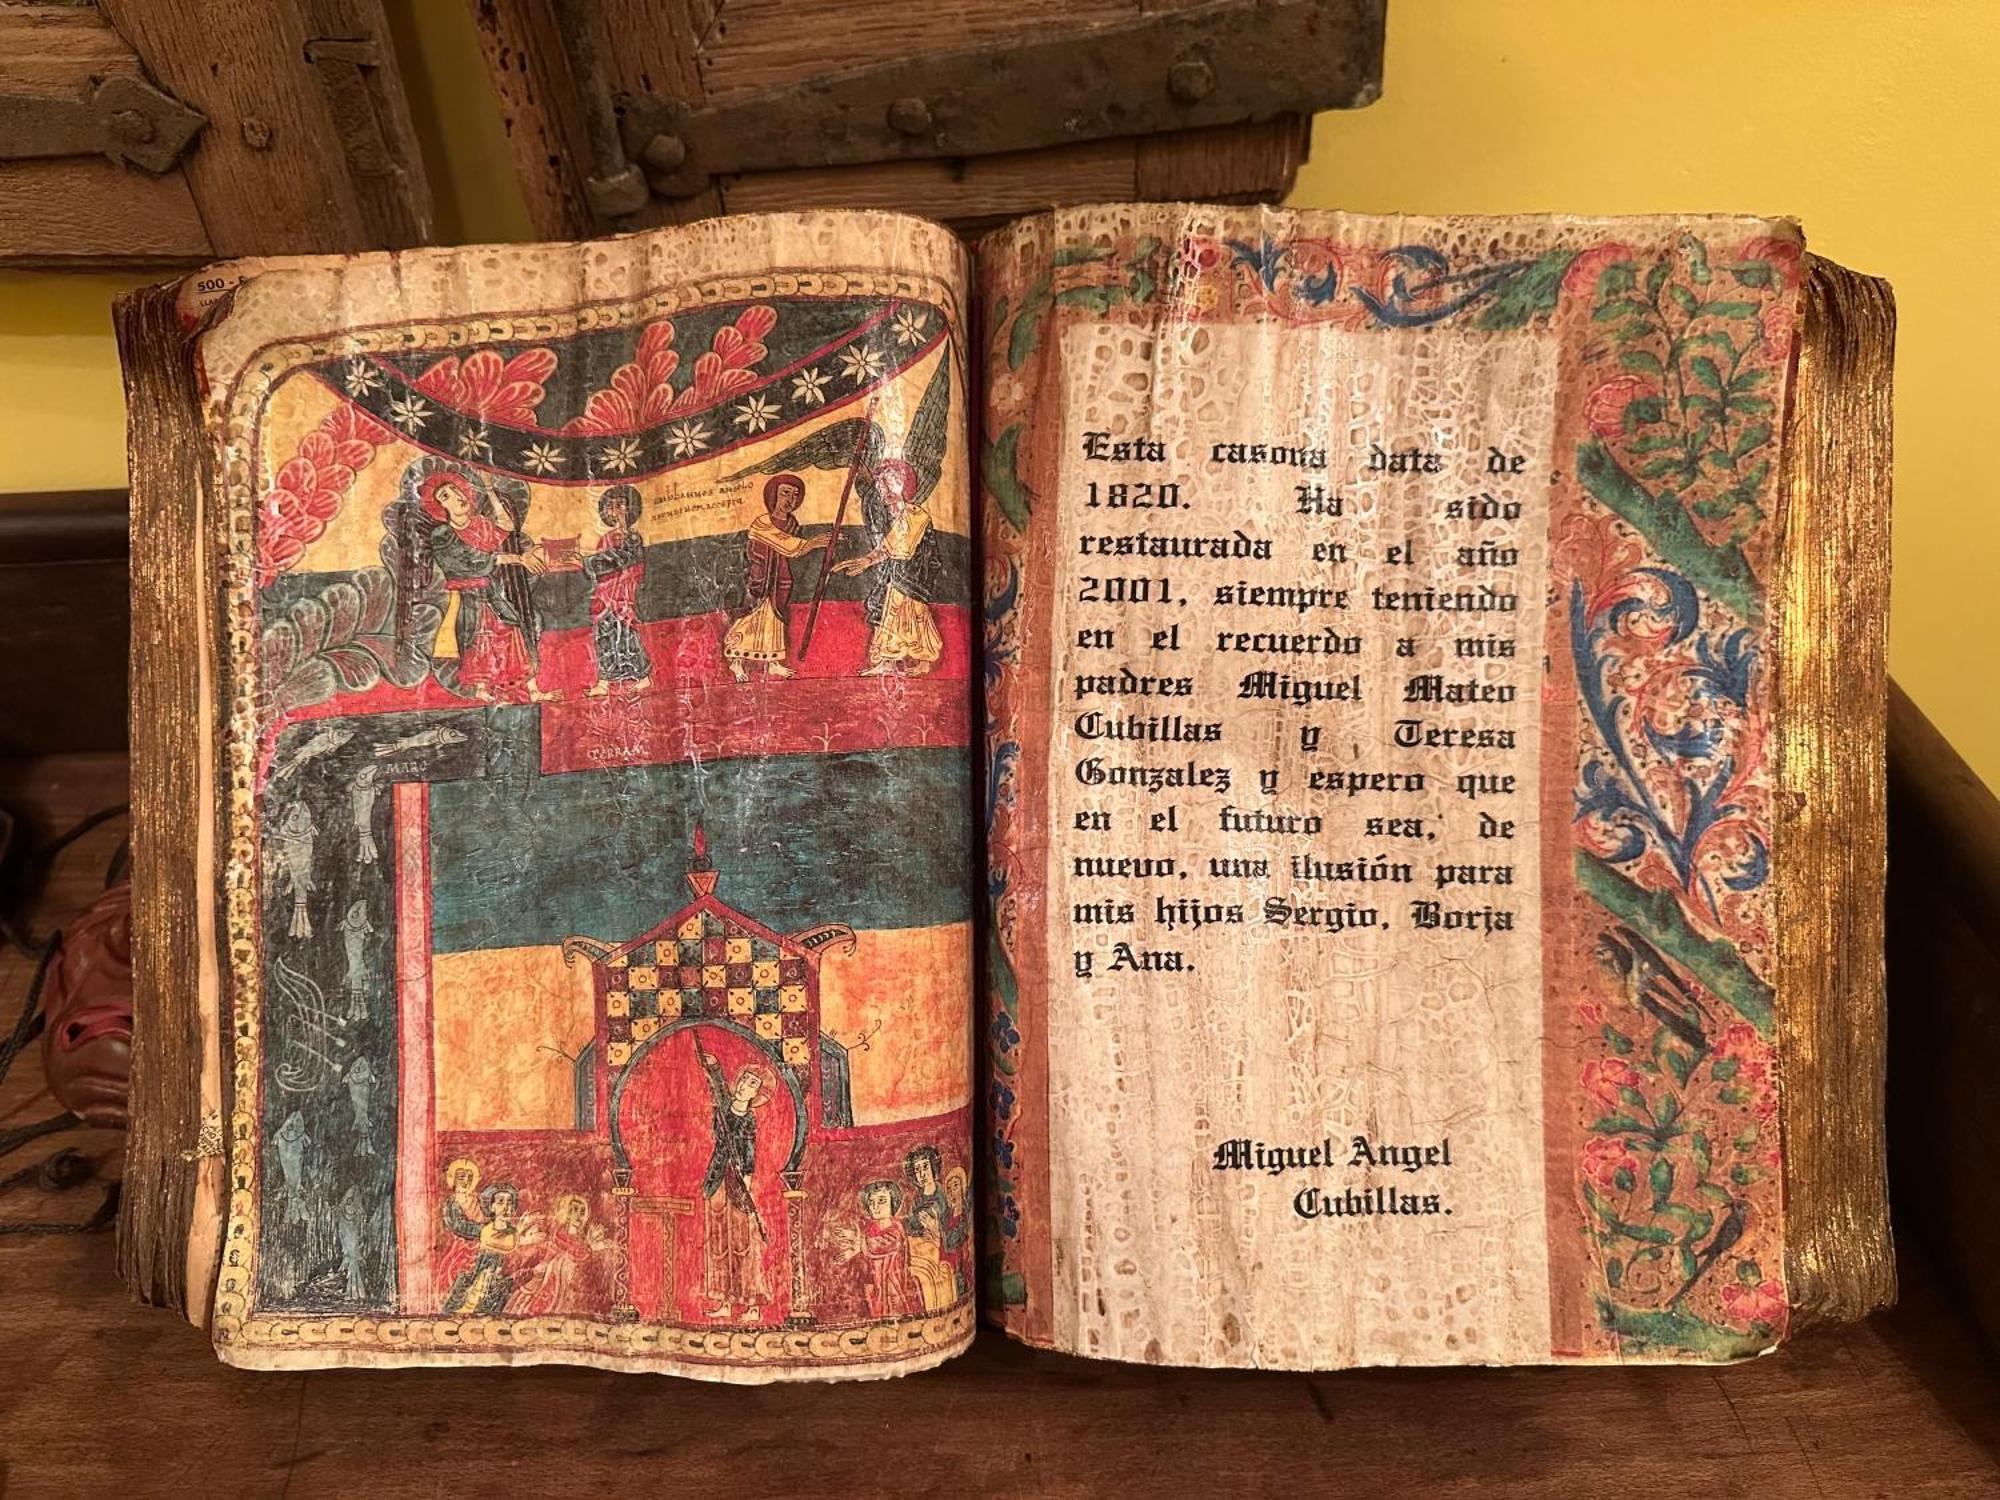 500 -
TERRAM
MARE
Esta casona data de
1820. Ha sido
restaurada en el año
2001, siempre teniendo
en el recuerdo a mis
padres Miguel Mateo
Cubillas y Teresa
Gonzalez y espero que
en el futuro sea, de
nuevo, una ilusión para
mis hijos Sergio, Borja
y Ana.
Miguel Angel
Cubillas.